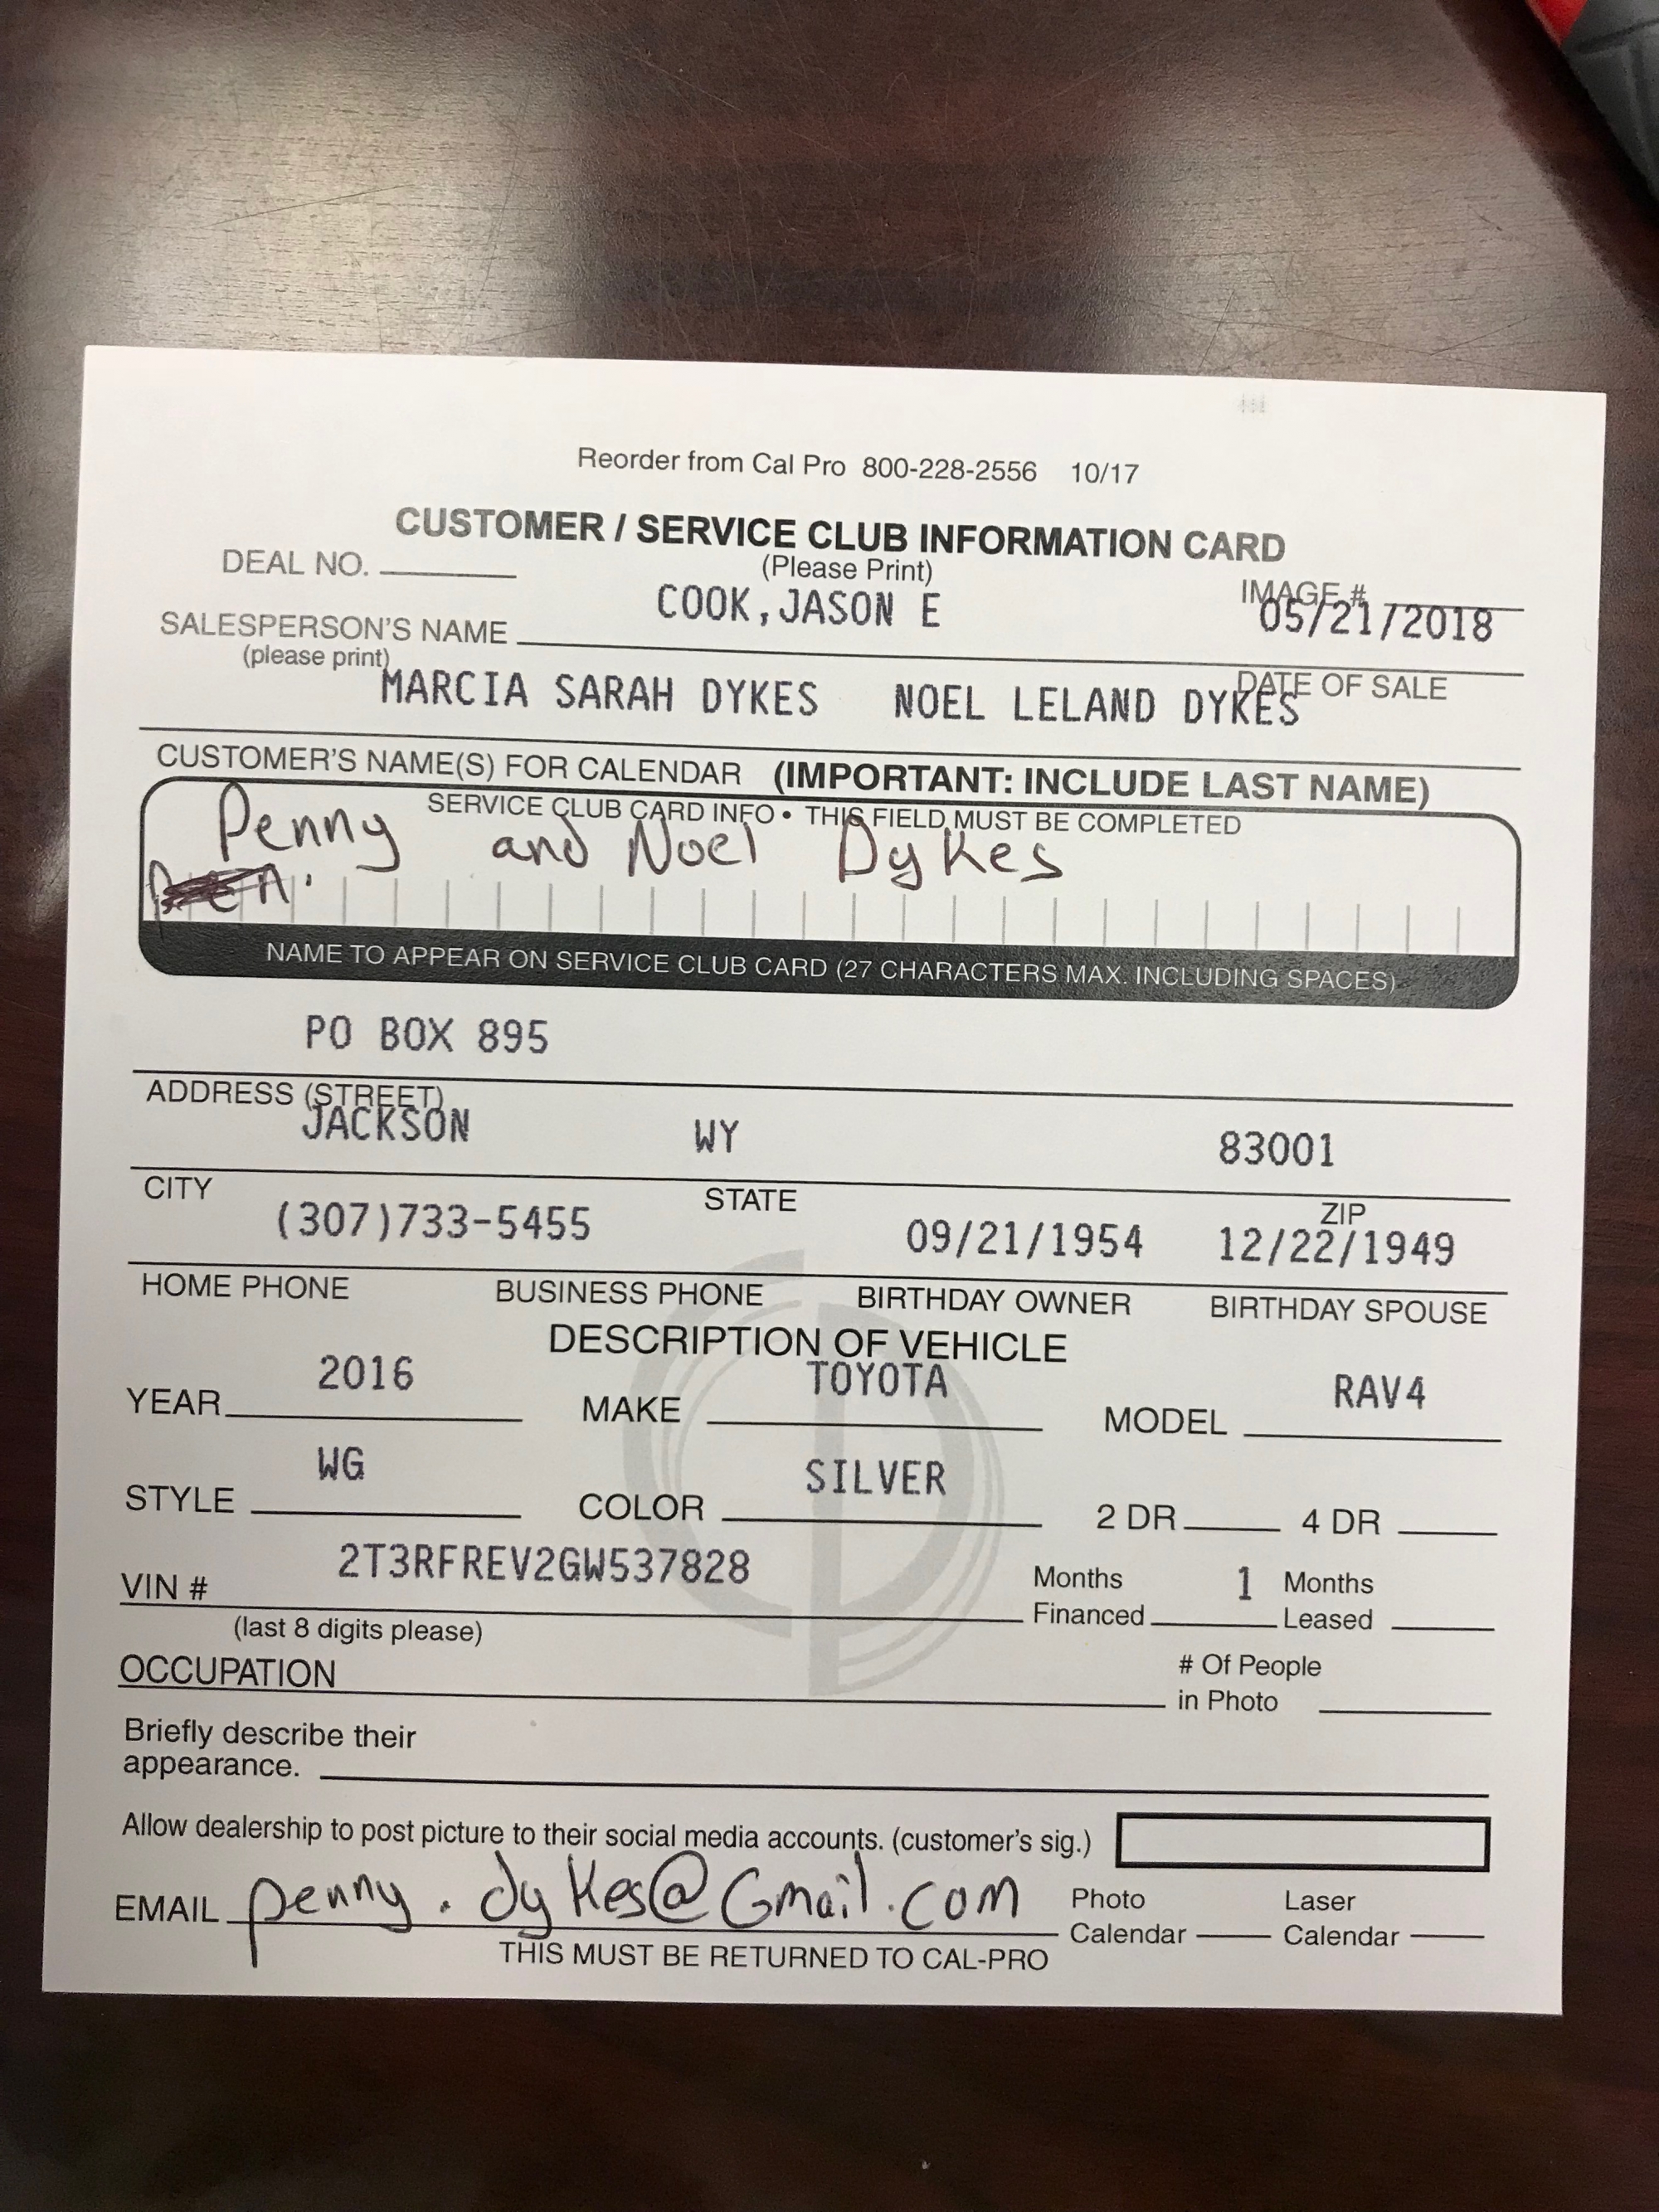 Reorder from Cal Pro 800-228-2556 10/17
CUSTOMER / SERVICE CLUB INFORMATION CARD
(Please Print)
DEAL NO.
IMAGE #
COOK,JASON E
05/21/2018
SALESPERSON'S NAME
(please print)
DATE OF SALE
MARCIA SARAH DYKES NOEL LELAND DYKES
CUSTOMER'S NAME(S) FOR CALENDAR (IMPORTANT: INCLUDE LAST NAME)
SERVICE CLUB CARD INFO • THIS FIELD MUST BE COMPLETED
Penny and Noel Dykes
NAME TO APPEAR ON SERVICE CLUB CARD (27 CHARACTERS MAX. INCLUDING SPACES)
PO BOX 895
ADDRESS (STREET)
JACKSON WY 83001
CITY STATE ZIP
(307)733-5455 09/21/1954 12/22/1949
HOME PHONE BUSINESS PHONE BIRTHDAY OWNER BIRTHDAY SPOUSE
DESCRIPTION OF VEHICLE
YEAR 2016 MAKE TOYOTA MODEL RAV4
STYLE WG COLOR SILVER 2 DR 4 DR
VIN # 2T3RFREV2GW537828 Months Financed 1 Months Leased
(last 8 digits please)
OCCUPATION # Of People in Photo
Briefly describe their
appearance.
Allow dealership to post picture to their social media accounts. (customer's sig.)
EMAIL penny.dykes@Gmail.com Photo Calendar Laser Calendar
THIS MUST BE RETURNED TO CAL-PRO